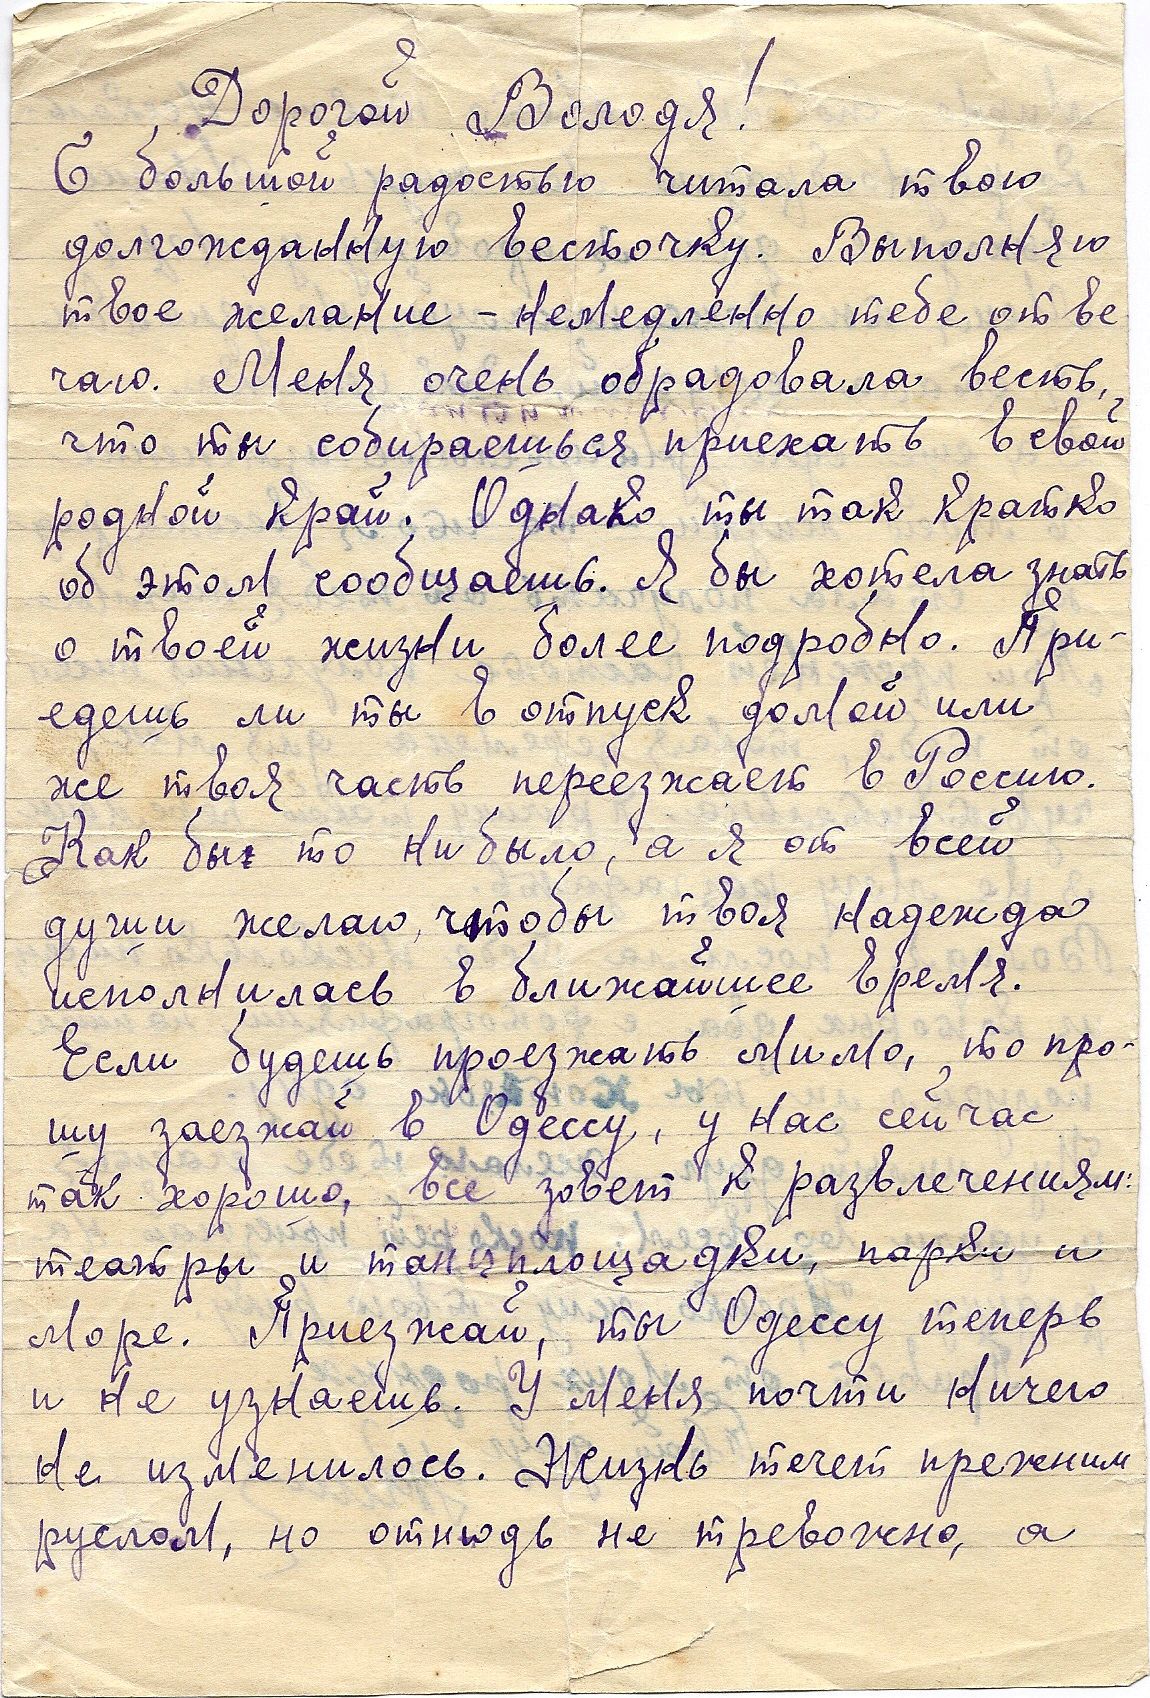 Дорогой Володя!
С большой радостью читала твою
долгожданную весточку. Выполняю
твое желание – немедленно тебе отве
чаю. Меня очень обрадовала весть,
что ты собираешься приехать в свой
родной край. Однако ты так кратко
об этом сообщаешь. Я бы хотела знать
о твоей жизни более подробно. При-
едешь ли ты в отпуск домой или
же твоя часть переезжает в Россию.
Как бы то ни было, а я от всей
души желаю, чтобы твоя надежда
исполнилась в ближайшее время.
Если будешь проезжать мимо, то про-
шу заезжай в Одессу, у нас сейчас
так хорошо, все зовет к развлечениям:
театры и танцплощадки, парки и
море. Приезжай, ты Одессу теперь
и не узнаешь. У меня почти ничего
не изменилось. Жизнь течет прежним
руслом, но отнюдь не тревожно, а